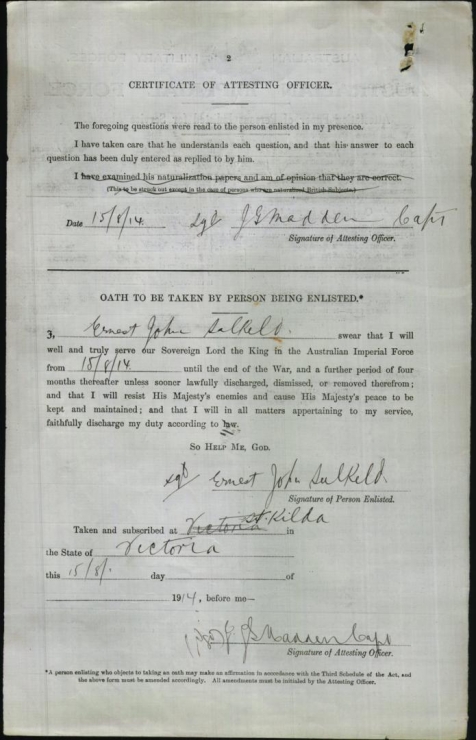 2
CERTIFICATE OF ATTESTING OFFICER.
The foregoing questions were read to the person enlisted in my presence.
I have taken care that he understands each question, and that his answer to each
question has been duly entered as replied to by him.
I have examined his naturalization papers and am of opinion that they are correct.
(This to be struck out except in the case of persons who are naturalized British Subjects.)
Date 15/8/14. sgd J G Madden Capt
Signature of Attesting Officer.
OATH TO BE TAKEN BY PERSON BEING ENLISTED.*
I, Ernest John Salkeld. swear that I will
well and truly serve our Sovereign Lord the King in the Australian Imperial Force
from 15/8/14. until the end of the War, and a further period of four
months thereafter unless sooner lawfully discharged, dismissed, or removed therefrom;
and that I will resist His Majesty's enemies and cause His Majesty's peace to be
kept and maintained; and that I will in all matters appertaining to my service,
faithfully discharge my duty according to law.
SO HELP ME, GOD.
sgd Ernest John Salkeld.
Signature of Person Enlisted.
Taken and subscribed at Victoria St. Kilda in
the State of Victoria
this 15/8/. day of
1914, before me—
(sgd) J G Madden Capt
Signature of Attesting Officer.
*A person enlisting who objects to taking an oath may make an affirmation in accordance with the Third Schedule of the Act, and
the above form must be amended accordingly. All amendments must be initialed by the Attesting Officer.